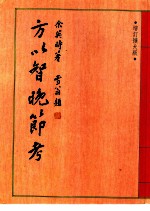 增訂擴大版
余英時著
雪翁題
方以智晚節考